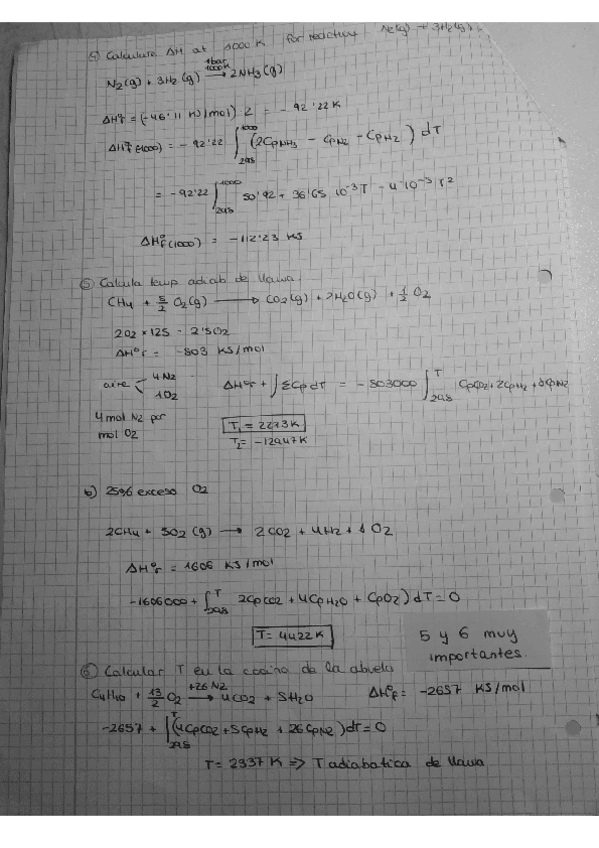 4) Calculate ΔH at 1000 K for reaction N2(g) + 3H2(g)
N2(g) + 3H2(g) ⟶ 2NH3(g)
1bar
1000K
ΔH°r = (-46'11 KJ/mol) 2 = -92'22 K
ΔH°r(1000) = -92'22 ∫298^1000 (2CpNH3 - CpN2 - CpH2) dT
= -92'22 ∫298^1000 50'92 + 36'65 10^-3 T - 4'10^-3 T^2
ΔH°r(1000) = -112'23 KJ
5) Calcula temp adiab de llama.
CH4 + 5/2 O2(g) ⟶ CO2(g) + 2H2O(g) + 1/2 O2
2O2 × 125 = 2'5O2
ΔH°r = -803 KJ/mol
aire < 4N2
1O2
ΔH°r + ∫ΣCp dT = -803000 ∫298^T CpCO2 + 2CpH2 + 8CpN2
4 mol N2 por
mol O2
T1 = 2273K
T2 = -12947K
b) 25% exceso O2
2CH4 + 5O2 (g) ⟶ 2CO2 + 4H2 + 1 O2
ΔH°r = 1606 KJ/mol
-1606000 + ∫298^T 2CpCO2 + 4CpH2O + CpO2) dT = 0
T = 4422K
5 y 6 muy
importantes.
6) Calcular T en la cocina de la abuela
C4H10 + 13/2 O2 ⟶ 4CO2 + 5H2O ΔH°r = -2657 KJ/mol
+26 N2
-2657 + ∫298^T (4CpCO2 + 5CpH2 + 26CpN2) dT = 0
T = 2337 K => T adiabatica de llama